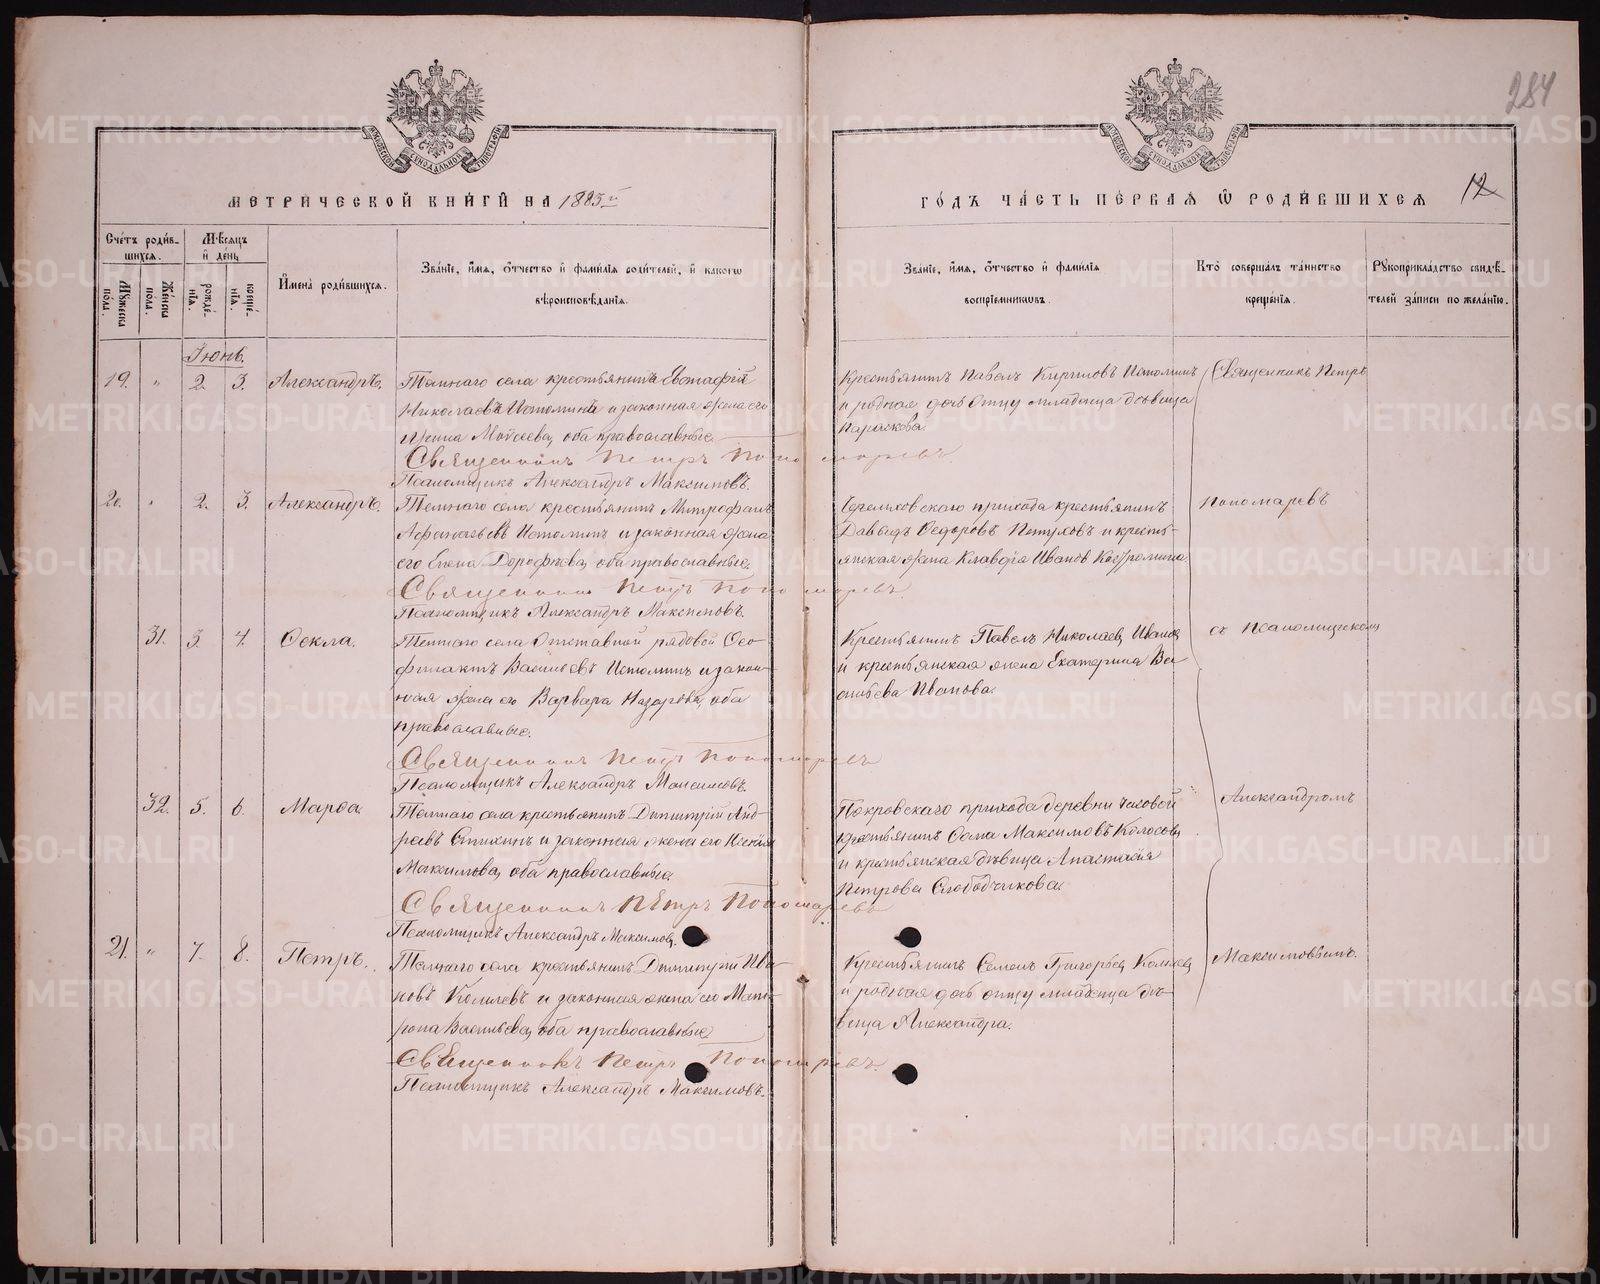 284
МОСКОВСКОЙ СѴНОДАЛЬНОЙ ТИПОГРАФІИ
МОСКОВСКОЙ СѴНОДАЛЬНОЙ ТИПОГРАФІИ
МЕТРИЧЕСКОЙ КНИГИ НА 1883й
ГОДЪ ЧАСТЬ ПЕРВАЯ Ѡ РОДИВШИХСЯ 12
Счетъ родив-
шихся.
Мужеска пола.
Женска пола.
Мѣсяцъ
и день
рожде-
нія.
креще-
нія.
Имена родившихся.
Званіе, имя, отчество и фамилія родителей, и какого
вѣроисповѣданія.
Званіе, имя, отчество и фамилія
воспріемниковъ.
Кто совершалъ таинство
крещенія.
Рукоприкладство свидѣ-
телей записи по желанію.
Іюнь.
19. " 2. 3. Александръ.
села крестьянинъ Евстафій
Николаевъ Истоминъ и законная жена его
Ирина Моисеева, оба православные.
Священникъ Петръ Пономаревъ.
Псаломщикъ Александръ Максимовъ.
Крестьянинъ Павелъ Кириловъ Истоминъ
и родная дочь отцу младенца дѣвица
Параскова.
Священникъ Петръ
20. " 2. 3. Александръ.
села крестьянинъ Митрофанъ
Истоминъ и законная жена
его Елена Дорофеева, оба православные.
Священникъ Петръ Пономаревъ.
Псаломщикъ Александръ Максимовъ.
прихода крестьянинъ
Давыдъ Ѳедоровъ Пѣтуховъ и кресть-
янская жена Клавдія Иванова
Пономаревъ
31. 3. 4. Ѳекла.
села Отставной рядовой Ѳео-
филактъ Васильевъ Истоминъ и закон-
ная жена его Варвара Назарова, оба
православные.
Священникъ Петръ Пономаревъ
Псаломщикъ Александръ Максимовъ.
Крестьянинъ Павелъ Николаевъ Ивановъ
и крестьянская жена Екатерина Ва
сильева Иванова.
съ псаломщикомъ
32. 5. 6. Марѳа
села крестьянинъ Димитрій Анд-
реевъ и законная жена его Ксенія
Максимова, оба православные.
Священникъ Петръ Пономаревъ
Псаломщикъ Александръ Максимовъ.
Покровскаго прихода деревни Часовой
крестьянинъ Ѳома Максимовъ Колосовъ
и крестьянская дѣвица Анастасія
Петрова Слободчикова.
Александромъ
21. " 7. 8. Петръ.
села крестьянинъ Димитрій Ива-
новъ и законная жена его Мат-
рона Васильева, оба православные.
Священникъ Петръ Пономаревъ.
Псаломщикъ Александръ Максимовъ.
Крестьянинъ Семенъ Григорьевъ
и родная дочь отцу младенца дѣ-
вица Александра.
Максимовымъ.
METRIKI.GASO-URAL.RU